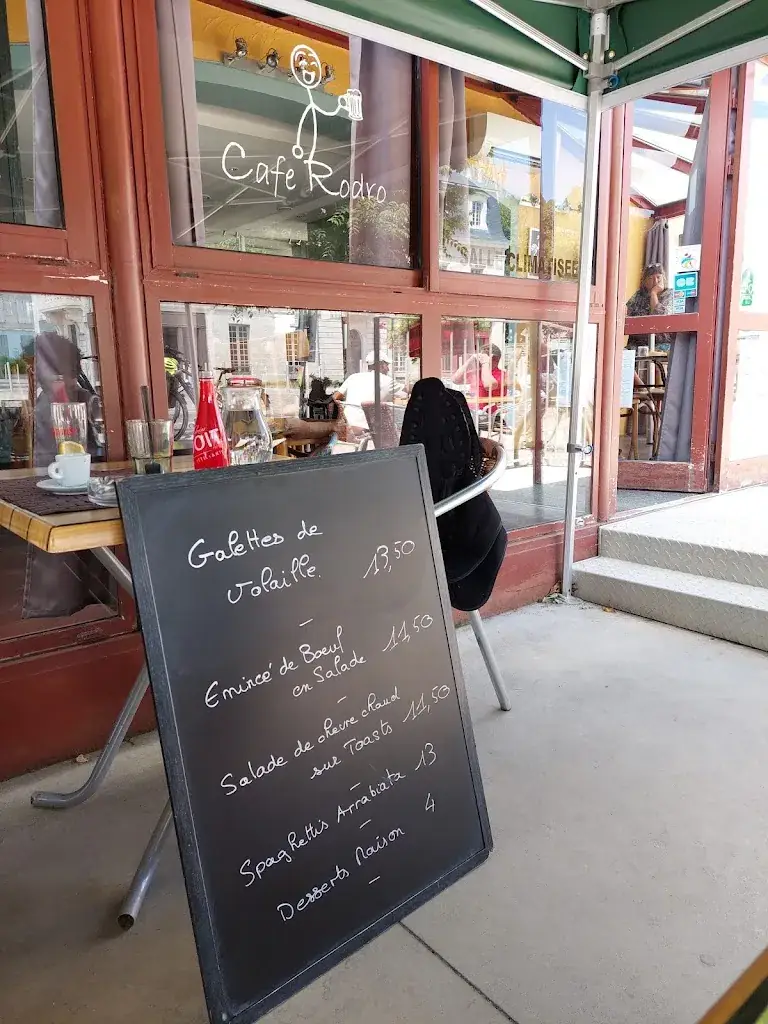 Cafe Rodro
CLIMATISEE
Galettes de
Volaille. 13,50
Emincé de Bœuf
en Salade 11,50
Salade de chevre chaud
sur Toasts 11,50
Spaghettis Arrabiata 13
Desserts Maison 4